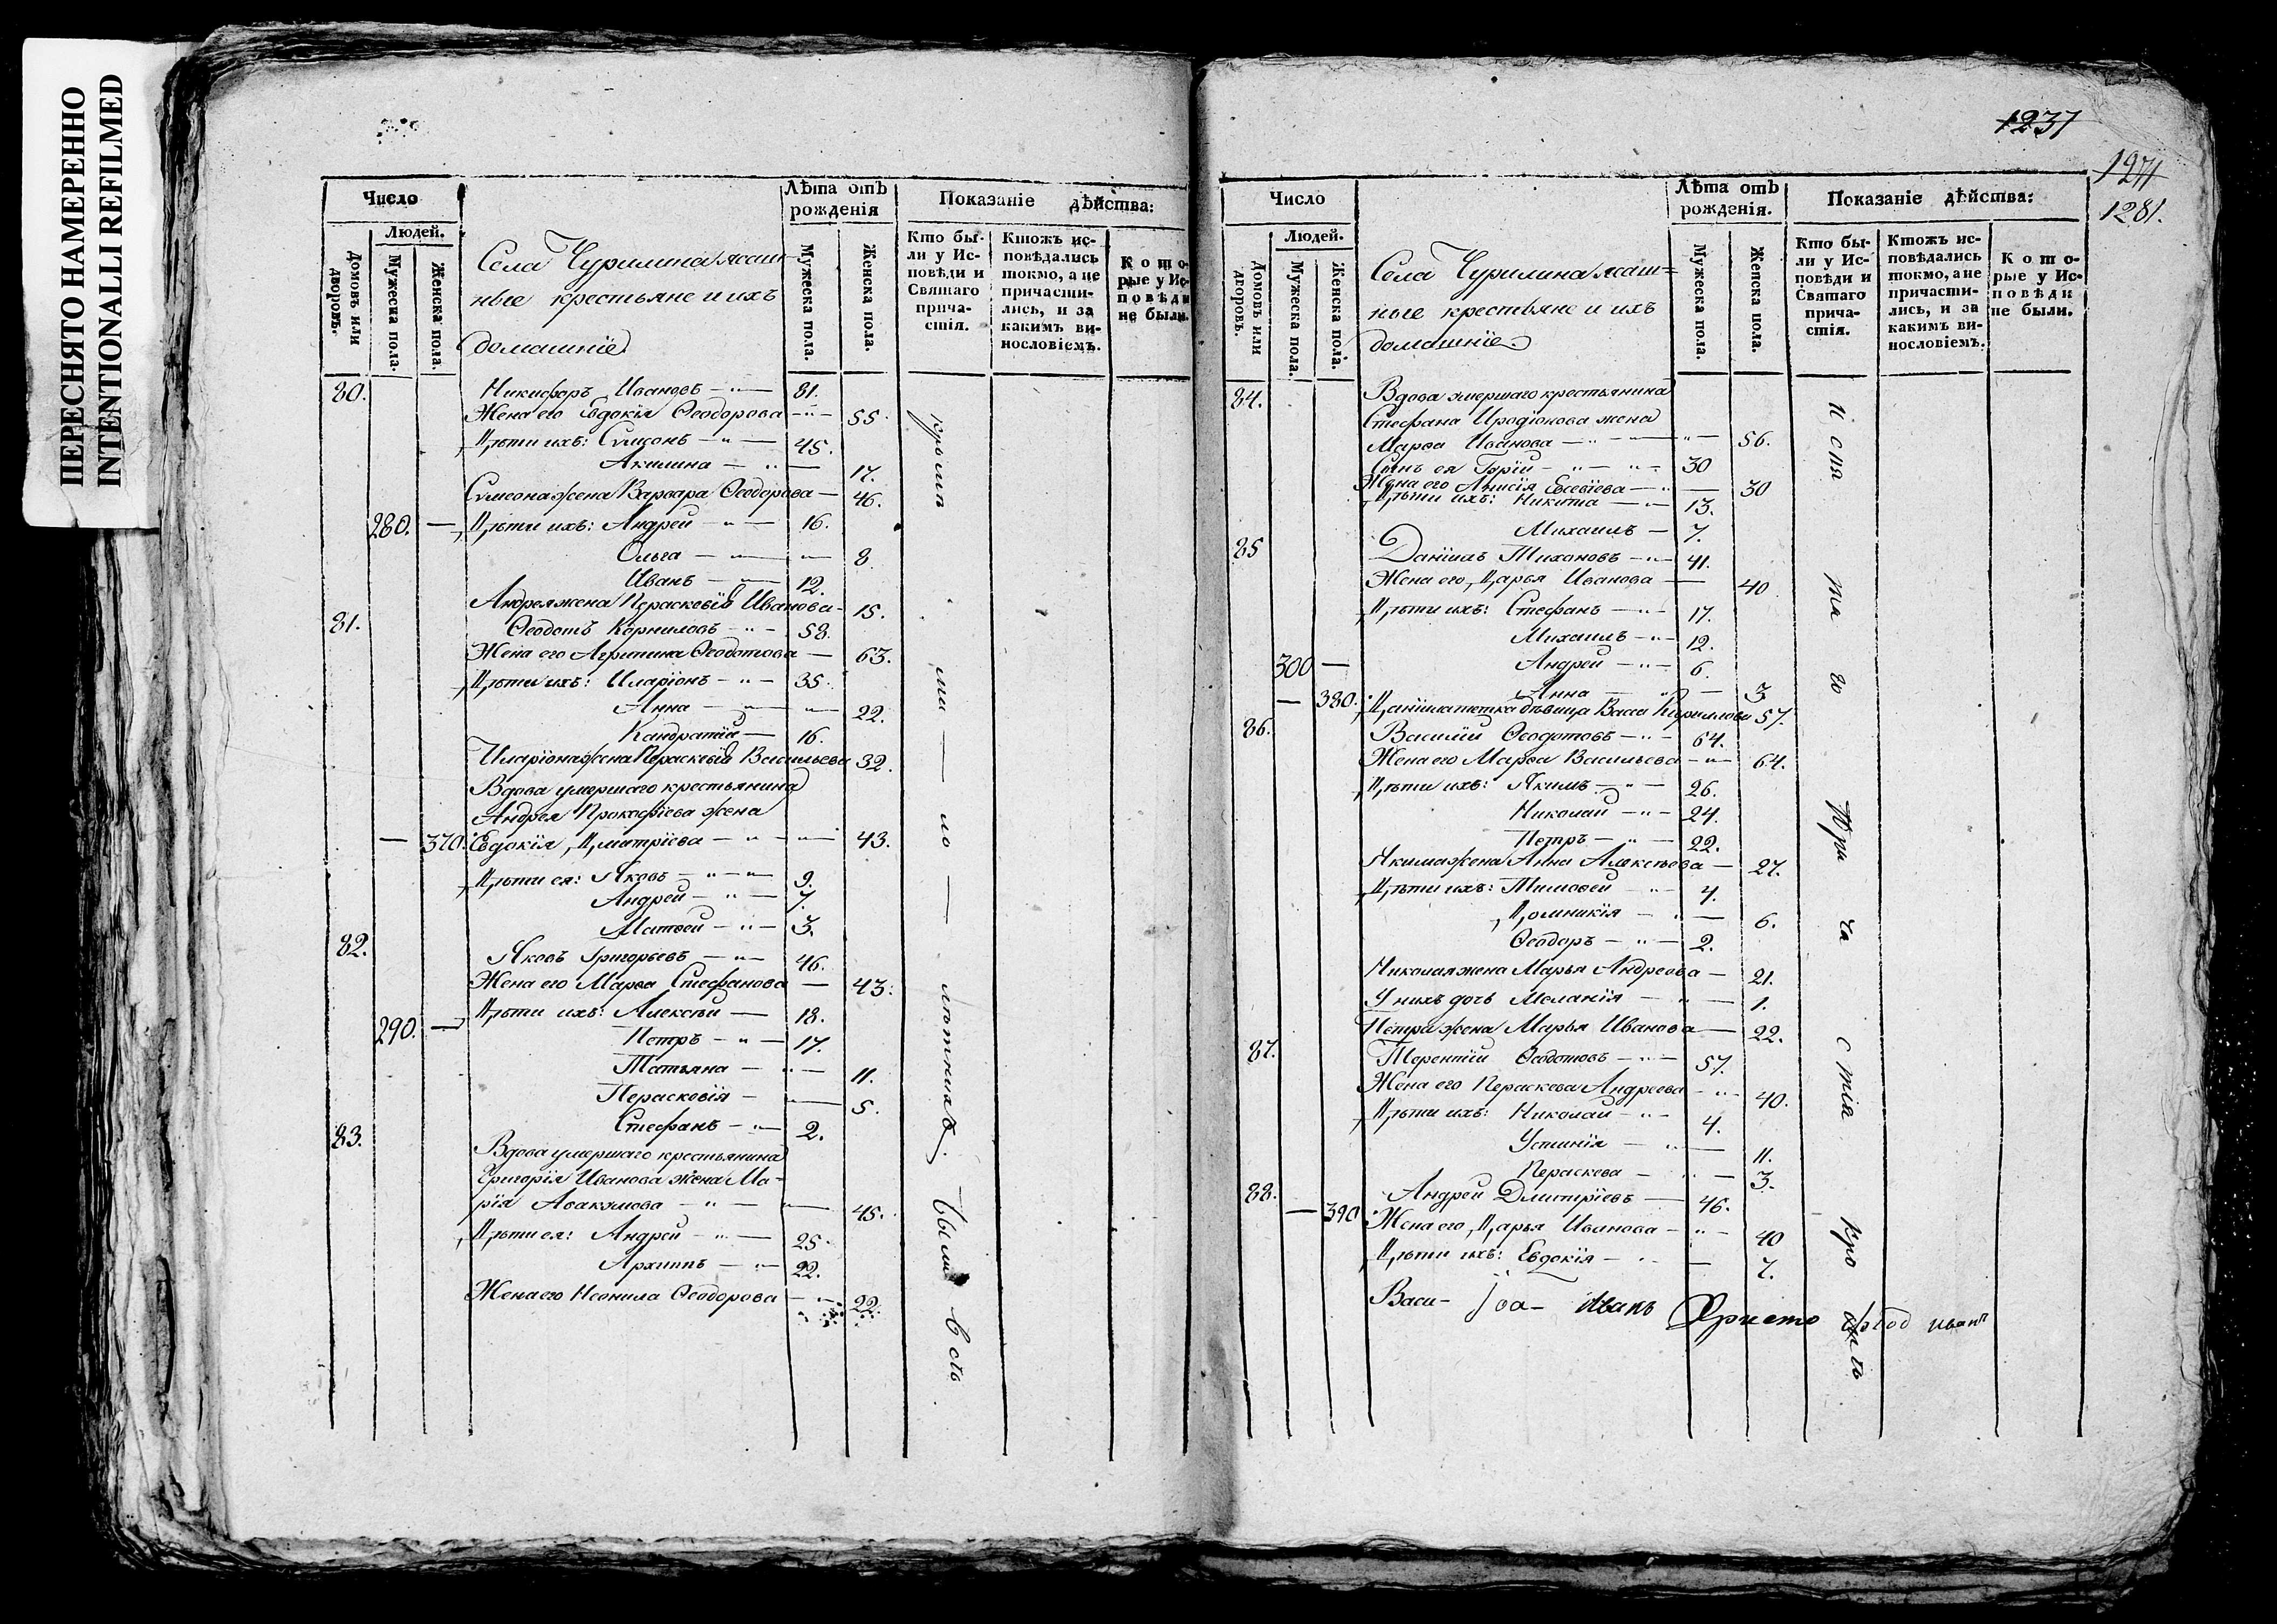 ПЕРЕСНЯТО НАМЕРЕННО
INTENTIONALLI REFILMED
Число
Лѣта отъ рожденія
Показаніе дѣйства:
Людей.
Домовъ или дворовъ.
Мужеска пола.
Женска пола.
Села Чурилина ясаш-
ные крестьяне и ихъ
домашніе
Мужеска пола.
Женска пола.
Кто бы-
ли у Ис-
повѣди и
Святаго
прича-
стія.
Ктожъ ис-
повѣдались
токмо, а не
причасти-
лись, и за
какимъ ви-
нословіемъ.
Кото-
рые у Ис-
повѣди
не были.
80. Никифоръ Ивановъ — 81.
Жена его Евдокія Ѳеодорова — 55.
Дѣти ихъ: Сумеонъ — 45.
Акилина — 17.
Сумеона жена Варвара Ѳеодорова — 46.
280. — Дѣти ихъ: Андрей — 16.
Ольга — 8.
Иванъ — 12.
Андрея жена Параскевія Иванова — 15.
81. Ѳеодотъ Корниловъ — 58.
Жена его Агрипина Ѳеодотова — 63.
Дѣти ихъ: Иларіонъ — 35.
Анна — 22.
Кандратій — 16.
Иларіона жена Пераскевія Васильева 32.
Вдова умершаго крестьянина
Андрея Прокофіева жена
— 370. Евдокія Дматріева — 43.
Дѣти ея: Яковъ — 9.
Андрей — 7.
Матвей — 3.
82. Яковъ Григорьевъ — 46.
Жена его Марѳа Стефанова — 43.
Дѣти ихъ: Алексѣй — 18.
290. — Петръ — 17.
Татьяна — 11.
Пераскевія — 5.
Стефанъ — 2.
83. Вдова умершаго крестьянина
Григорія Иванова жена Ма-
рія Авакумова — 45.
Дѣти ея: Андрей — 25.
Архипъ — 22.
Жена его Неонила Ѳеодорова — 22.
ми — ло — лѣтныхъ. Были всѣ
1237
1271
1281.
Число
Лѣта отъ рожденія.
Показаніе дѣйства:
Людей.
Домовъ или дворовъ.
Мужеска пола.
Женска пола.
Села Чурилина ясаш-
ные крестьяне и ихъ
домашніе
Мужеска пола.
Женска пола.
Кто бы-
ли у Ис-
повѣди и
Святаго
прича-
стія.
Ктожъ ис-
повѣдались
токмо, а не
причасти-
лись, и за
какимъ ви-
нословіемъ.
Кото-
рые у Ис-
повѣди
не были.
84. Вдова умершаго крестьянина
Стефана Иродіонова жена
Марѳа Иванова — 56.
Сынъ ея Гурій — 30
Жена его Анисія Евсевіева — 30
Дѣти ихъ: Никита — 13.
Михаилъ — 7.
85 Даніилъ Тихоновъ — 41.
Жена его Дарья Иванова — 40
Дѣти ихъ: Стефанъ — 17.
Михаилъ — 12.
300 — Андрей — 6.
Анна — 3
— 380. Даніила тетка дѣвица Васса Кириллова 57.
86. Василій Ѳеодотовъ — 64.
Жена его Марѳа Васильева — 64.
Дѣти ихъ: Якимъ — 26.
Николай — 24.
Петръ — 22.
Якима жена Анна Алексѣева — 27.
Дѣти ихъ: Тимоѳей — 4.
Домникія — 6.
Ѳеодоръ — 2.
Николая жена Марья Андреева — 21.
У нихъ дочь Меланія — 1.
Петра жена Марья Иванова — 22.
87. Терентій Ѳеодотовъ — 57.
Жена его Пераскева Андреева — 40.
Дѣти ихъ: Николай — 4.
Устинія — 11.
Пераскева — 3.
88. Андрей Дмитріевъ — 46.
— 390 Жена его Дарья Иванова — 40
Дѣти ихъ: Евдокія — 7.
и свя та го При ча стія кро
Васи- Іоа- Иванъ Христо Иванъ